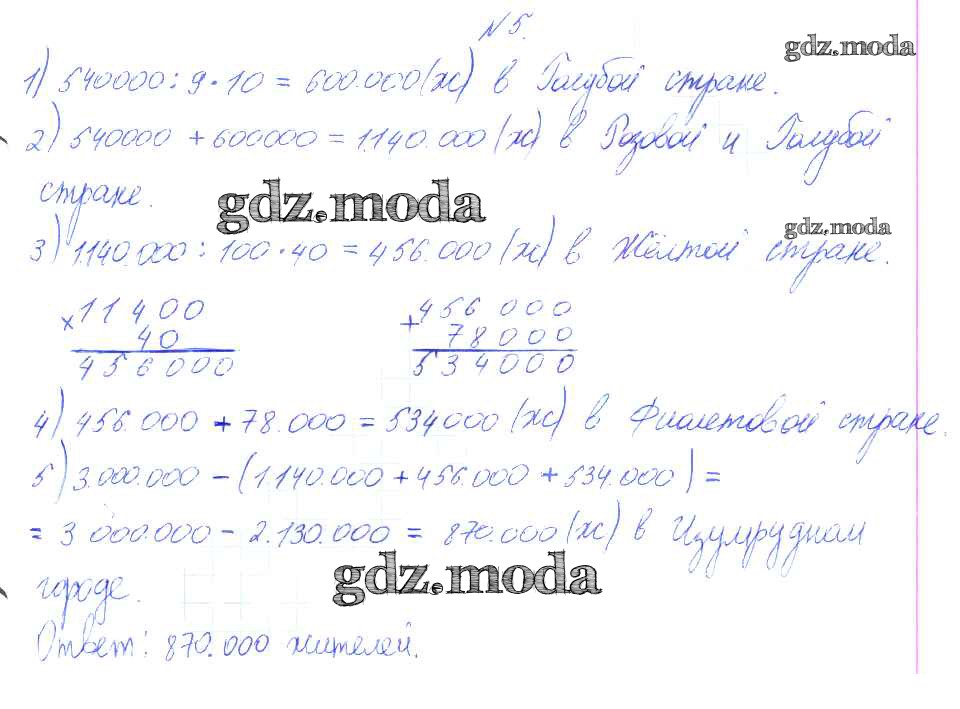 № 5.
gdz.moda
1) 540000 : 9 · 10 = 600.000 (ж) в Голубой стране.
2) 540000 + 600000 = 1.140.000 (ж) в Розовой и Голубой
стране.
gdz.moda
gdz.moda
3) 1.140.000 : 100 · 40 = 456.000 (ж) в Жёлтой стране.
× 11400 + 456 000
40 78000
456000 534000
4) 456.000 + 78.000 = 534000 (ж) в Фиолетовой стране.
5) 3.000.000 – (1.140.000 + 456.000 + 534.000) =
= 3 000.000 – 2.130.000 = 870.000 (ж) в Изумрудном
gdz.moda
городе.
Ответ: 870.000 жителей.